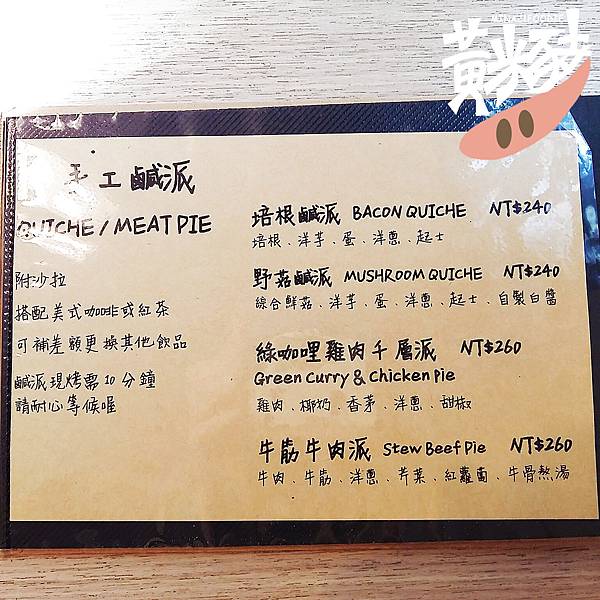 黃米豬
手工鹹派
QUICHE / MEAT PIE
附沙拉
搭配美式咖啡或紅茶
可補差額更換其他飲品
鹹派現烤需10分鐘
請耐心等候喔
培根鹹派 BACON QUICHE NT$240
培根、洋芋、蛋、洋蔥、起士
野菇鹹派 MUSHROOM QUICHE NT$240
綜合鮮菇、洋芋、蛋、洋蔥、起士、自製白醬
綠咖哩雞肉千層派 NT$260
Green Curry & Chicken Pie
雞肉、椰奶、香茅、洋蔥、甜椒
牛筋牛肉派 Stew Beef Pie NT$260
牛肉、牛筋、洋蔥、芹菜、紅蘿蔔、牛骨熬湯